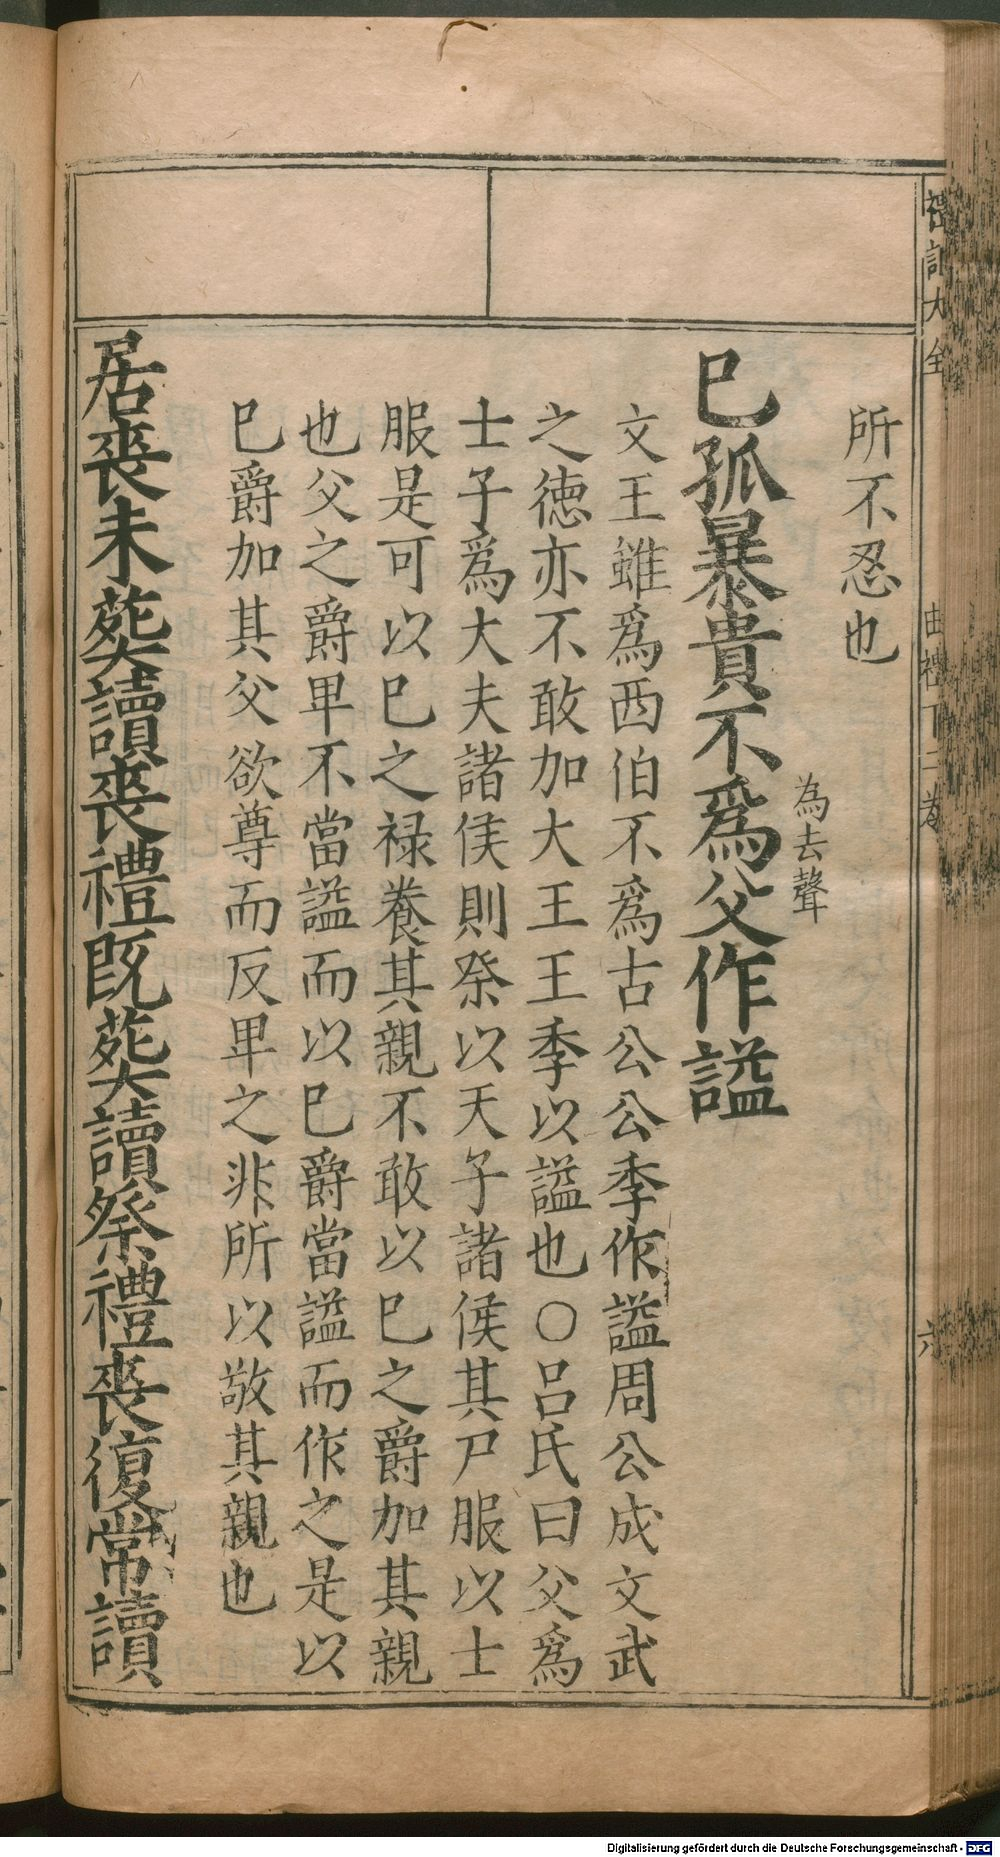 所不忍也
已孤暴貴不爲父作謚
為去聲
文王雖爲西伯不爲古公公季作謚周公成文武
之徳亦不敢加大王王季以謚也○呂氏曰父爲
士子爲大夫諸侯則祭以天子諸侯其尸服以士
服是可以已之禄養其親不敢以已之爵加其親
也父之爵卑不當謚而以已爵當謚而作之是以
已爵加其父欲尊而反卑之非所以敬其親也
居喪未塟讀喪禮既塟讀祭禮喪復常讀
大全
曲禮下二卷
六
Digitalisierung gefördert durch die Deutsche Forschungsgemeinschaft - DFG